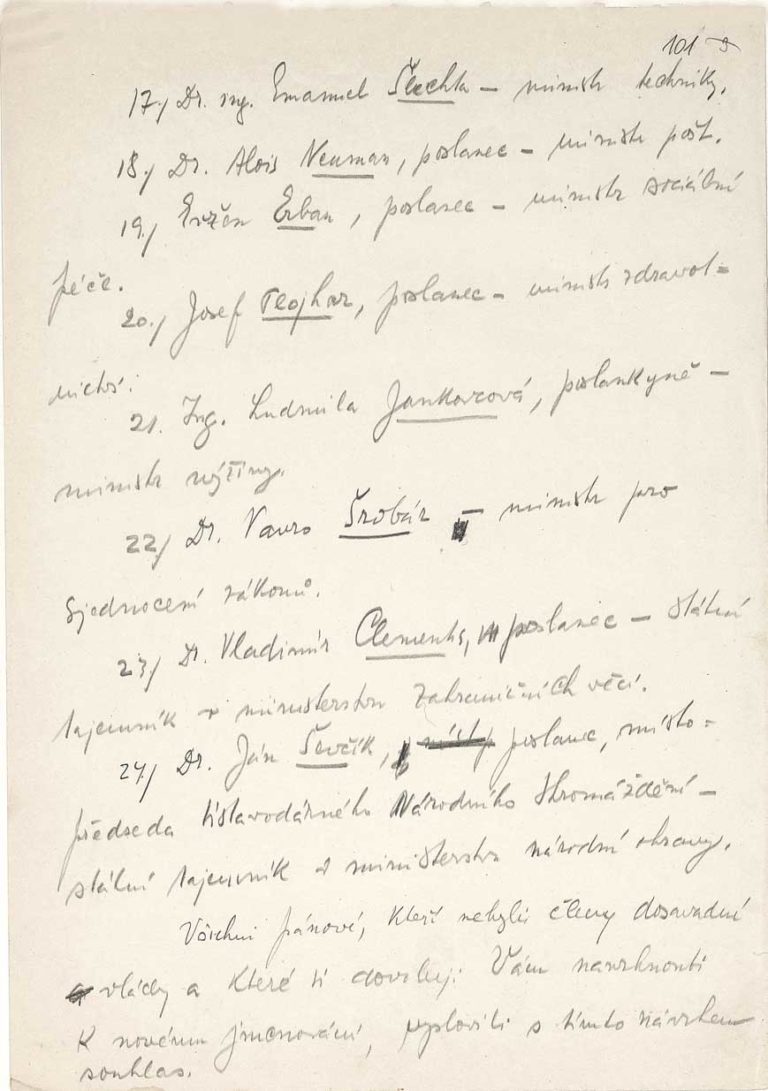 101
17./ Dr. ing. Emanuel Šlechta – ministr techniky.
18./ Dr. Alois Neuman, poslanec – ministr pošt.
19./ Evžen Erban, poslanec – ministr sociální
péče.
20./ Josef Plojhar, poslanec – ministr zdravot=
nictví.
21. Ing. Ludmila Jankovcová, poslankyně –
ministr výživy.
22./ Dr. Vavro Šrobár – ministr pro
sjednocení zákonů.
23/ Dr. Vladimír Clementis, poslanec – státní
tajemník v ministerstvu zahraničních věcí.
24/ Dr. Ján Ševčík, poslanec, místo=
předseda Ústavodárného Národního shromáždění –
státní tajemník v ministerstvu národní obrany.
Všichni pánové, kteří nebyli členy dosavadní
vlády a které si dovoluji Vám navrhnouti
k novému jmenování, vyslovili s tímto návrhem
souhlas.